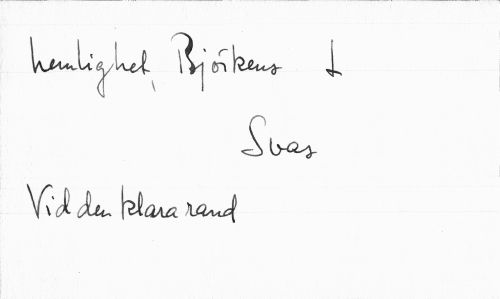 hemlighet, Björkens †
Svas
Vid den klara rand